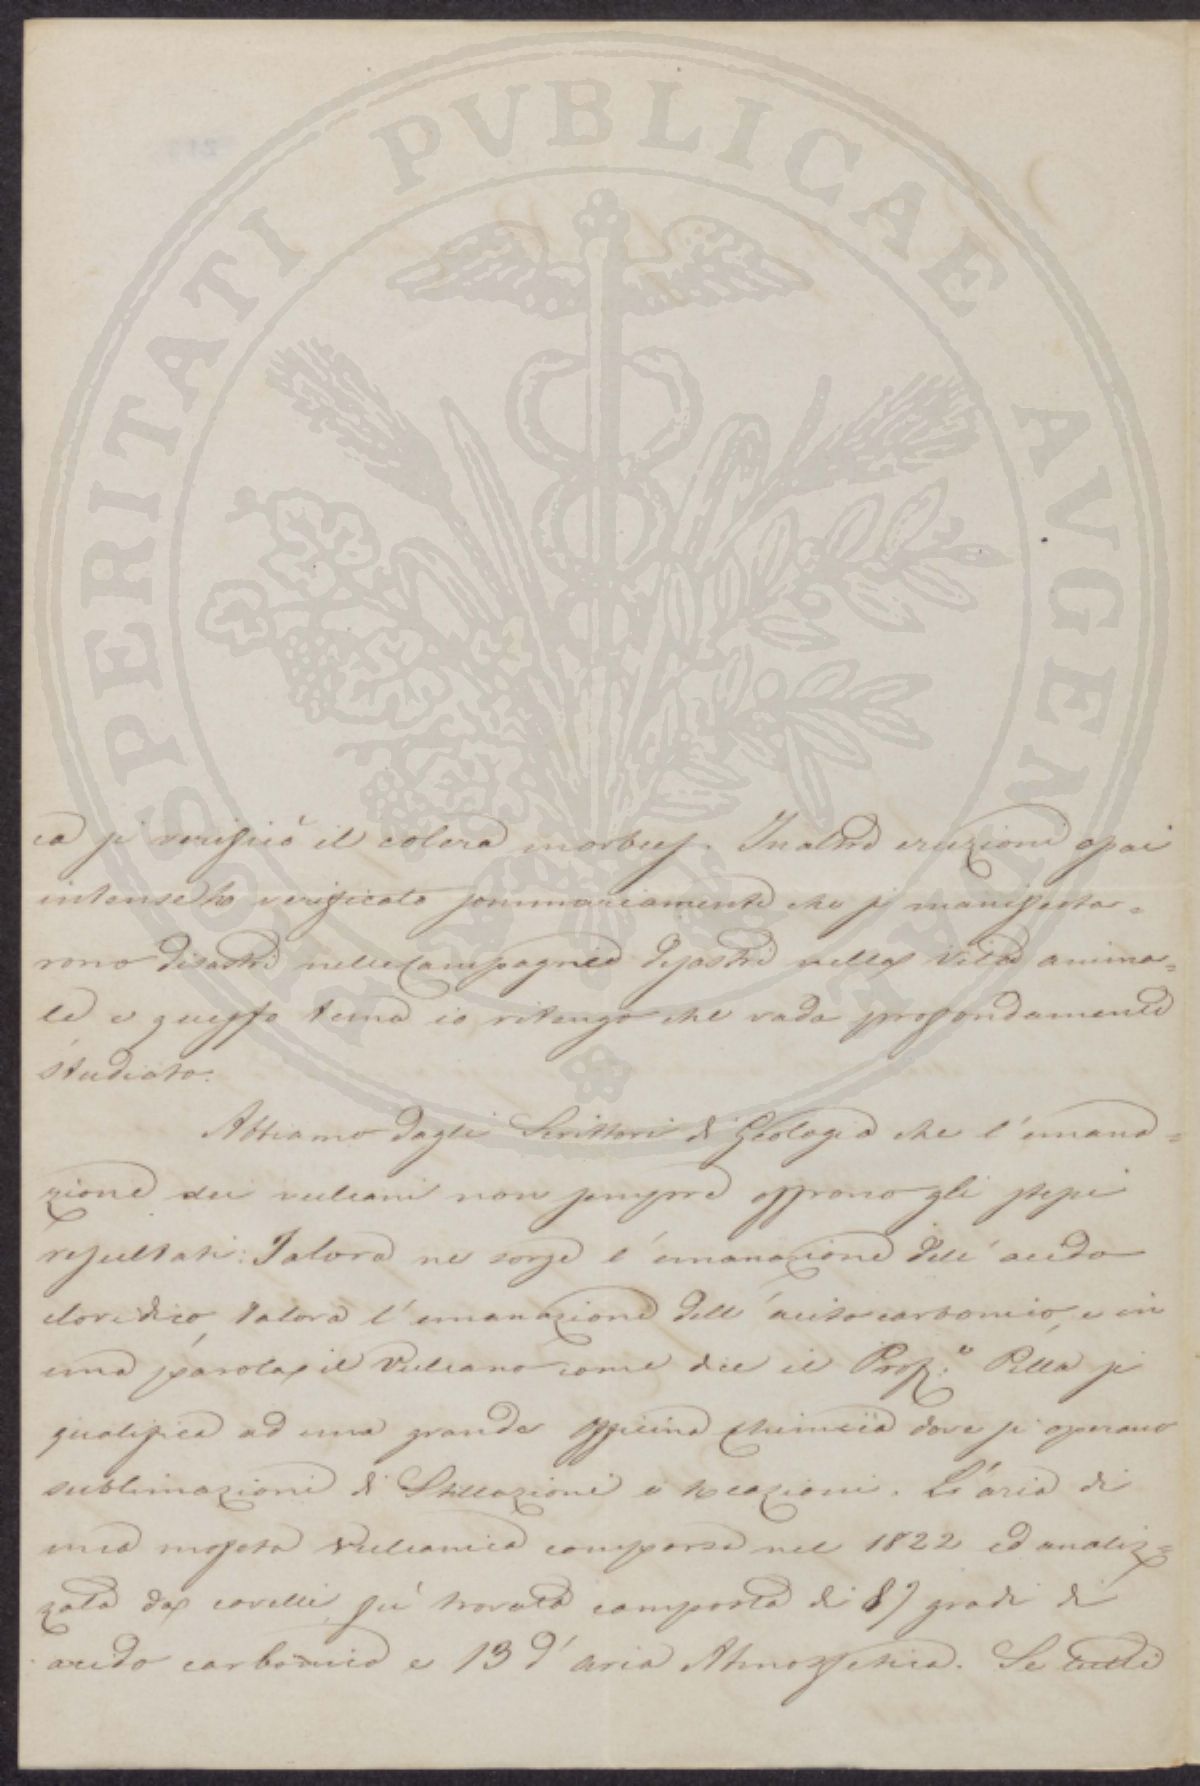 PROSPERITATI PUBLICAE AVGENDAE
ca si verificò il colera morbus. In altre eruzioni assai
intense ho verificato sommariamente che si manifesta=
rono disastri nelle Campagnie disastri nella Vita anima=
le e questo tema io ritengo che vada profondamente
studiato.
Abbiamo dagli Scrittori di Geologia che l'emana=
zione dei vulcani non sempre offrono gli stessi
resultati: Talora ne sorge l'emanazione dell'acido
cloridico, talora l'emanazione dell'acito carbonico, e in
una parola, il Vulcano come dice il Prof.e Pilla si
qualifica ad una grande officina chimica dove si operano
sublimazioni di Stillazioni e reazioni. L'aria di
una mofeta vulcanica comparsa nel 1822 ed analiz=
zata da covelli fù trovata composta di 87 gradi di
acido carbonico e 13 d'aria Atmosfetica. Se tutti